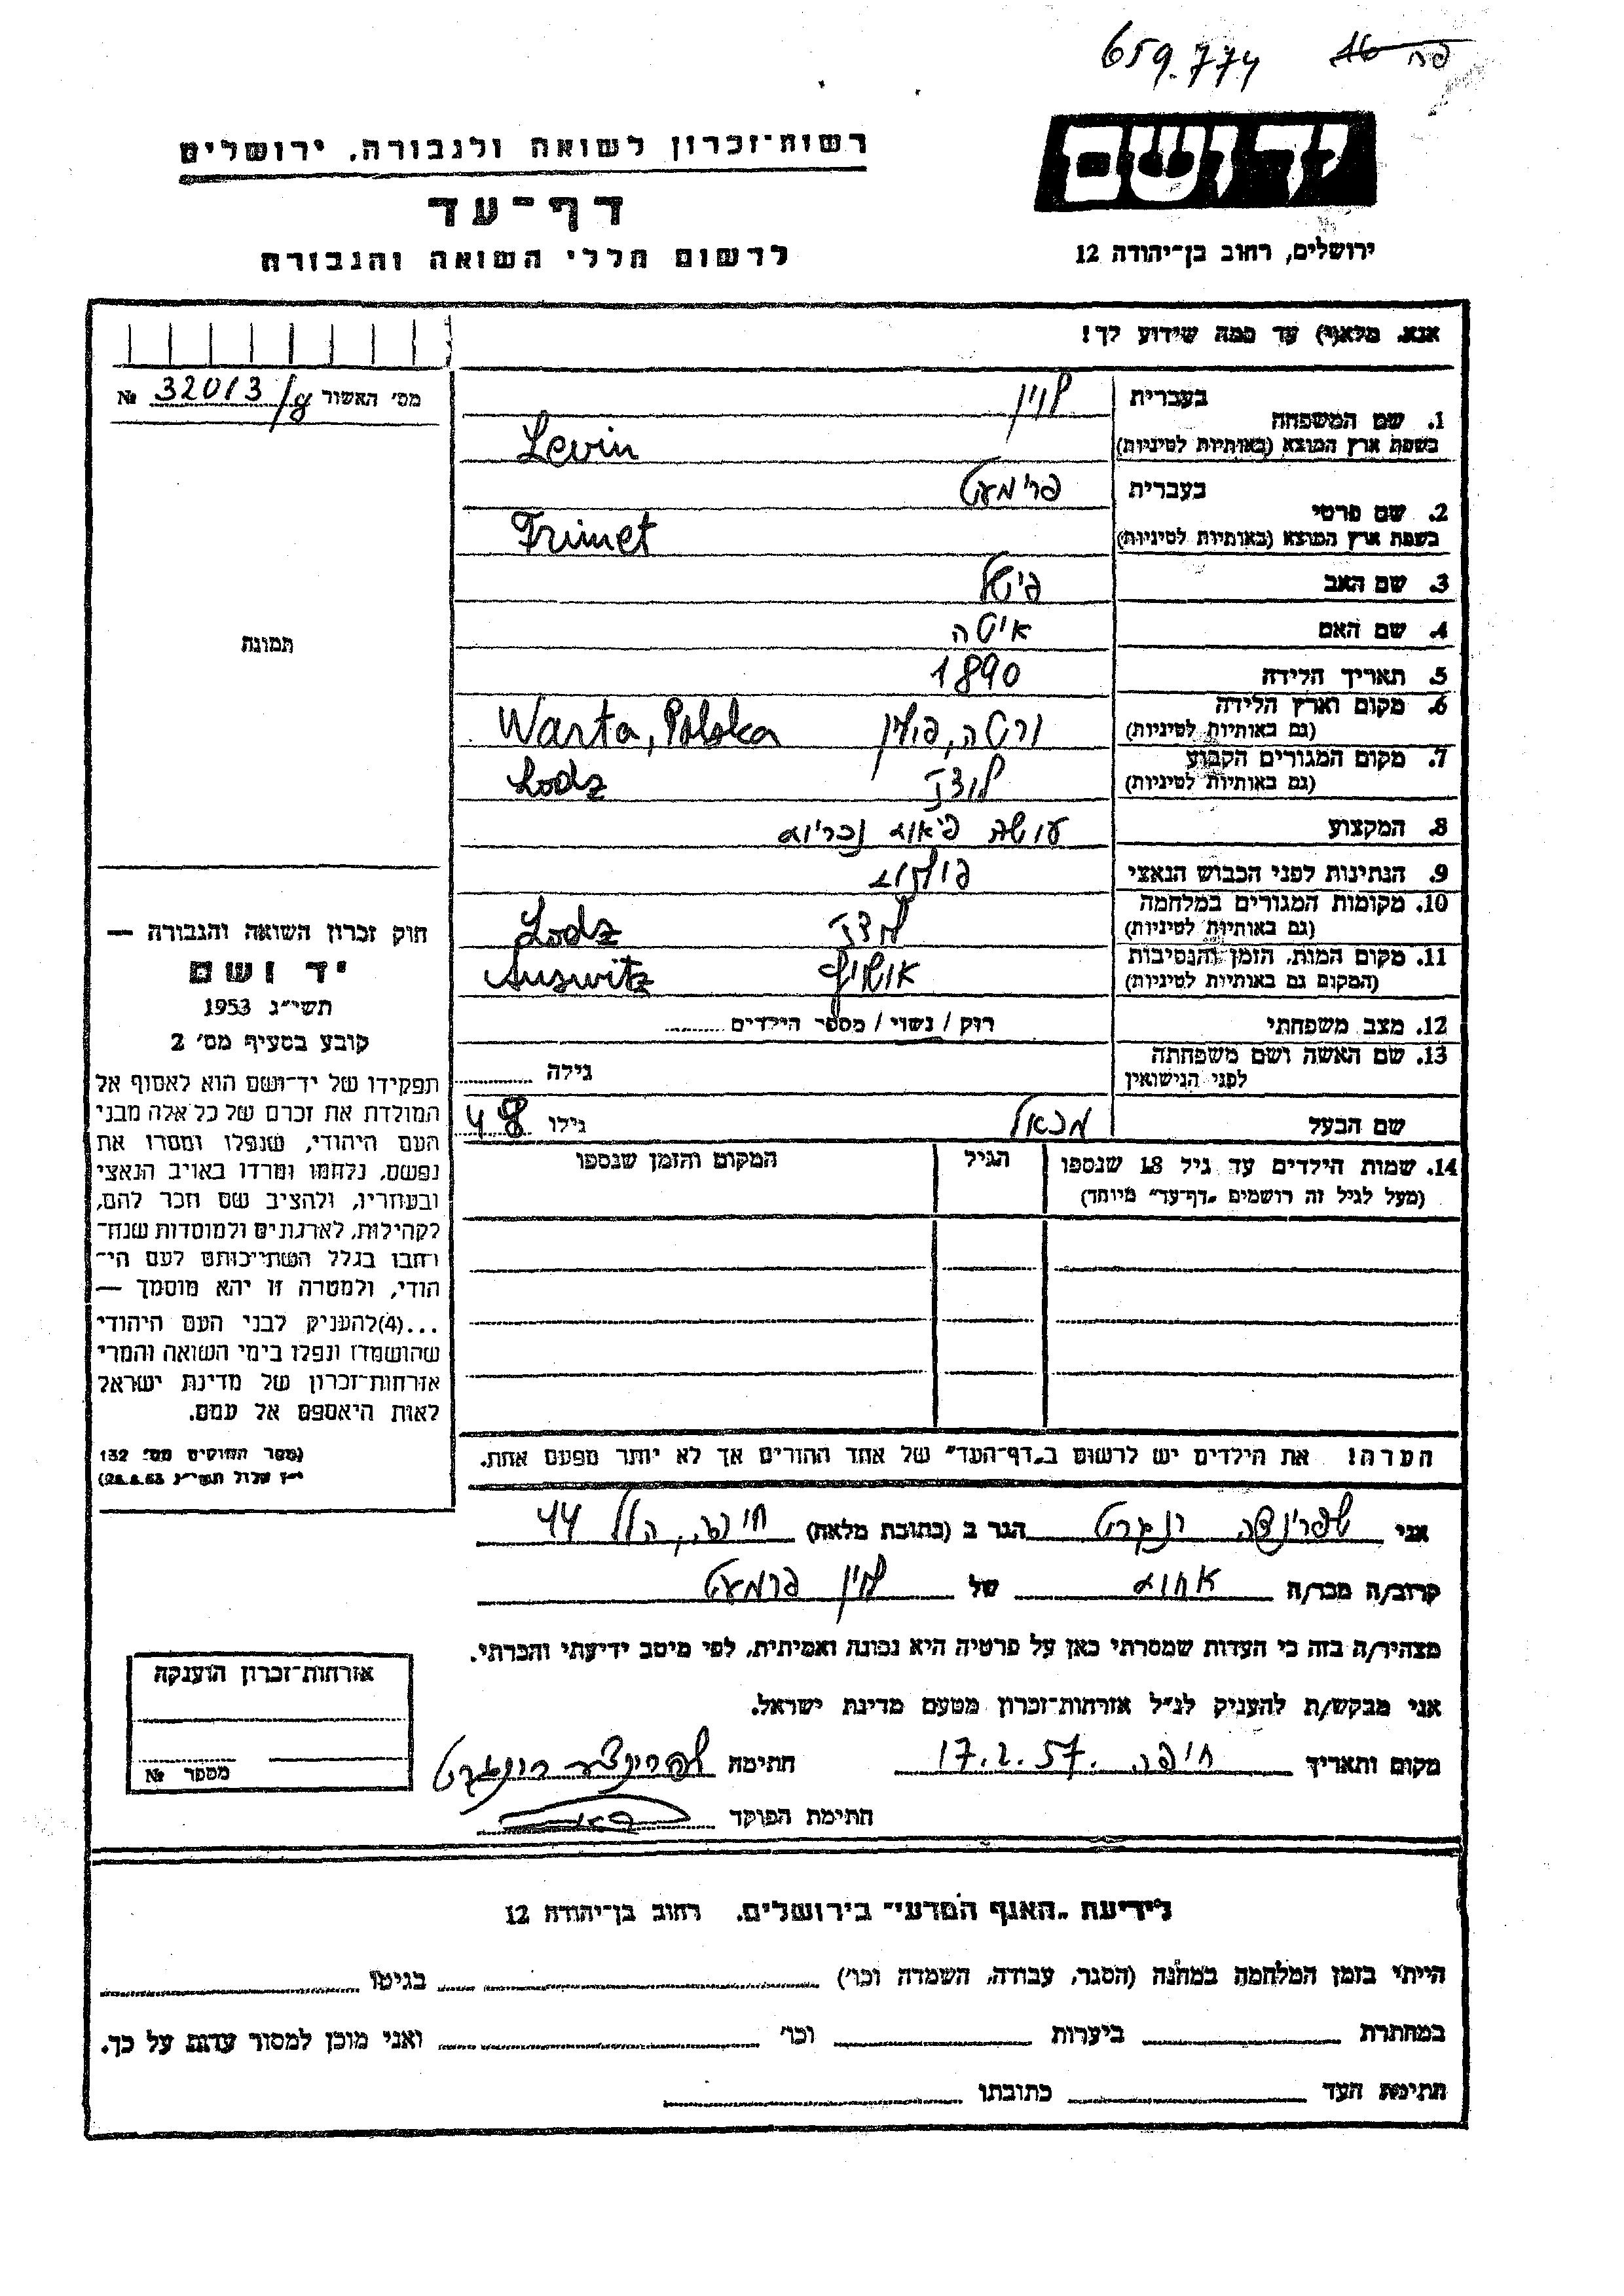 659.774
רשות־זכרון לשואה ולגבורה, ירושלים
דף־עד
לרשום חללי השואה והגבורה
יד ושם
ירושלים, רחוב בן־יהודה 12
אנא, מלא(י) עד כמה שידוע לך!
מס׳ האשור 32013/g №
1. שם המשפחה בעברית לוין
בשפת ארץ המוצא (באותיות לטיניות) Levin
2. שם פרטי בעברית פרימעט
בשפת ארץ המוצא (באותיות לטיניות) Frimet
3. שם האב פישל
4. שם האם איטה
5. תאריך הלידה 1890
6. מקום וארץ הלידה (גם באותיות לטיניות) ורטה, פולין Warta, Polska
7. מקום המגורים הקבוע (גם באותיות לטיניות) לודז Lodz
8. המקצוע עושה פיאות נכריות
9. הנתינות לפני הכבוש הנאצי פולנית
10. מקומות המגורים במלחמה (גם באותיות לטיניות) לודז Lodz
11. מקום המות, הזמן והנסיבות (המקום גם באותיות לטיניות) אושויץ Auswitz
12. מצב משפחתי רוק / נשוי / מספר הילדים
13. שם האשה ושם משפחתה לפני הנישואין גילה
שם הבעל מכאל גילו 48
14. שמות הילדים עד גיל 18 שנספו הגיל המקום והזמן שנספו
(מעל לגיל זה רושמים „דף־עד” מיוחד)
הערה! את הילדים יש לרשום ב„דף־העד” של אחד ההורים אך לא יותר מפעם אחת.
תמונה
חוק זכרון השואה והגבורה —
יד ושם
תשי״ג 1953
קובע בסעיף מס׳ 2
תפקידו של יד־ושם הוא לאסוף אל
המולדת את זכרם של כל אלה מבני
העם היהודי, שנפלו ומסרו את
נפשם, נלחמו ומרדו באויב הנאצי
ובעוזריו, ולהציב שם וזכר להם,
לקהילות, לארגונים ולמוסדות שנח־
רבו בגלל השתייכותם לעם הי־
הודי, ולמטרה זו יהא מוסמך —
...(4)להעניק לבני העם היהודי
שהושמדו ונפלו בימי השואה והמרי
אזרחות־זכרון של מדינת ישראל
לאות היאספם אל עמם.
(ספר החוקים מס׳ 132
י״ז אלול תשי״ג 28.8.53)
אני שפרינצה הגר ב (כתובת מלאה) חיפה, הלל 44
קרוב/ה מכר/ה אחות של לוין פרמעט
מצהיר/ה בזה כי העדות שמסרתי כאן על פרטיה היא נכונה ואמיתית, לפי מיטב ידיעתי והכרתי.
אני מבקש/ת להעניק לנ״ל אזרחות־זכרון מטעם מדינת ישראל.
מקום ותאריך חיפה, 17.2.57 חתימה
חתימת הפוקד
אזרחות־זכרון הוענקה
מספר №
לידיעת „האגף המדעי” בירושלים, רחוב בן־יהודה 12
הייתי בזמן המלחמה במחנה (הסגר, עבודה, השמדה וכו׳) בגיטו
במחתרת ביערות וכו׳ ואני מוכן למסור עדות על כך.
חתימת העד כתובתו